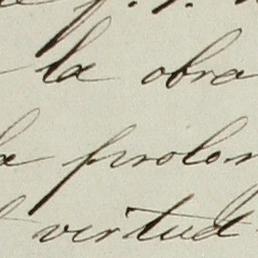 la obra
la prolon
virtud